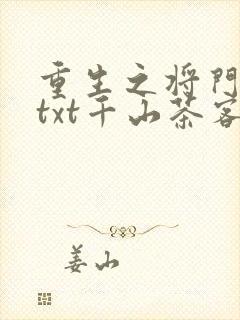 重生之将門
txt千山茶客
姜山